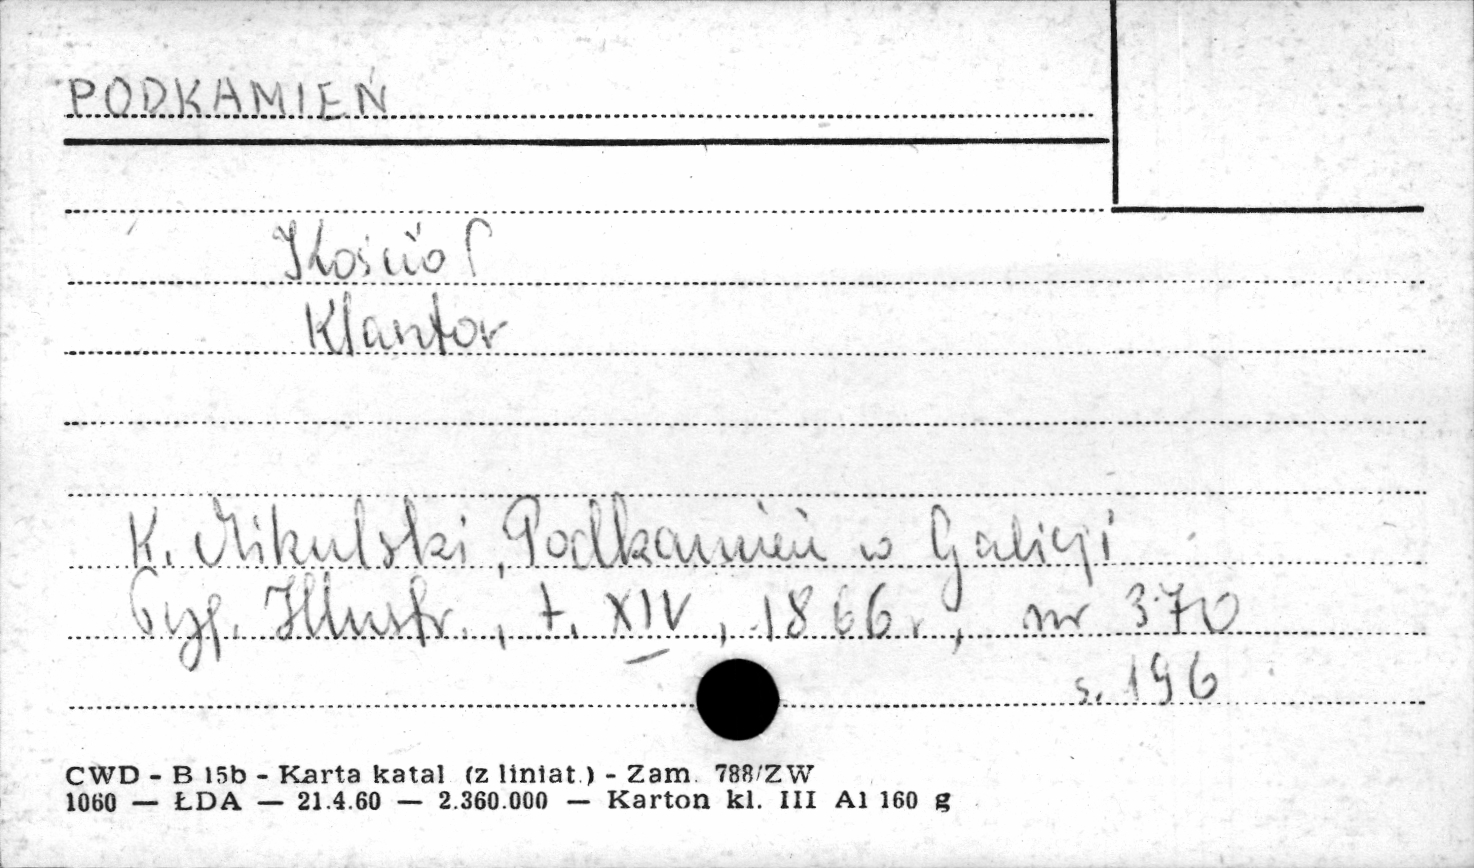 PODKAMIEŃ
Kościół
Klasztor
K. Mikulski, Podkamień w Galicji
Tyg. Illustr., t. XIV, 1866 r., nr 370
s. 196
CWD - B 15b - Karta katal (z liniat.) - Zam. 788/ZW
1060 — ŁDA — 21.4.60 — 2.360.000 — Karton kl. III A1 160 g